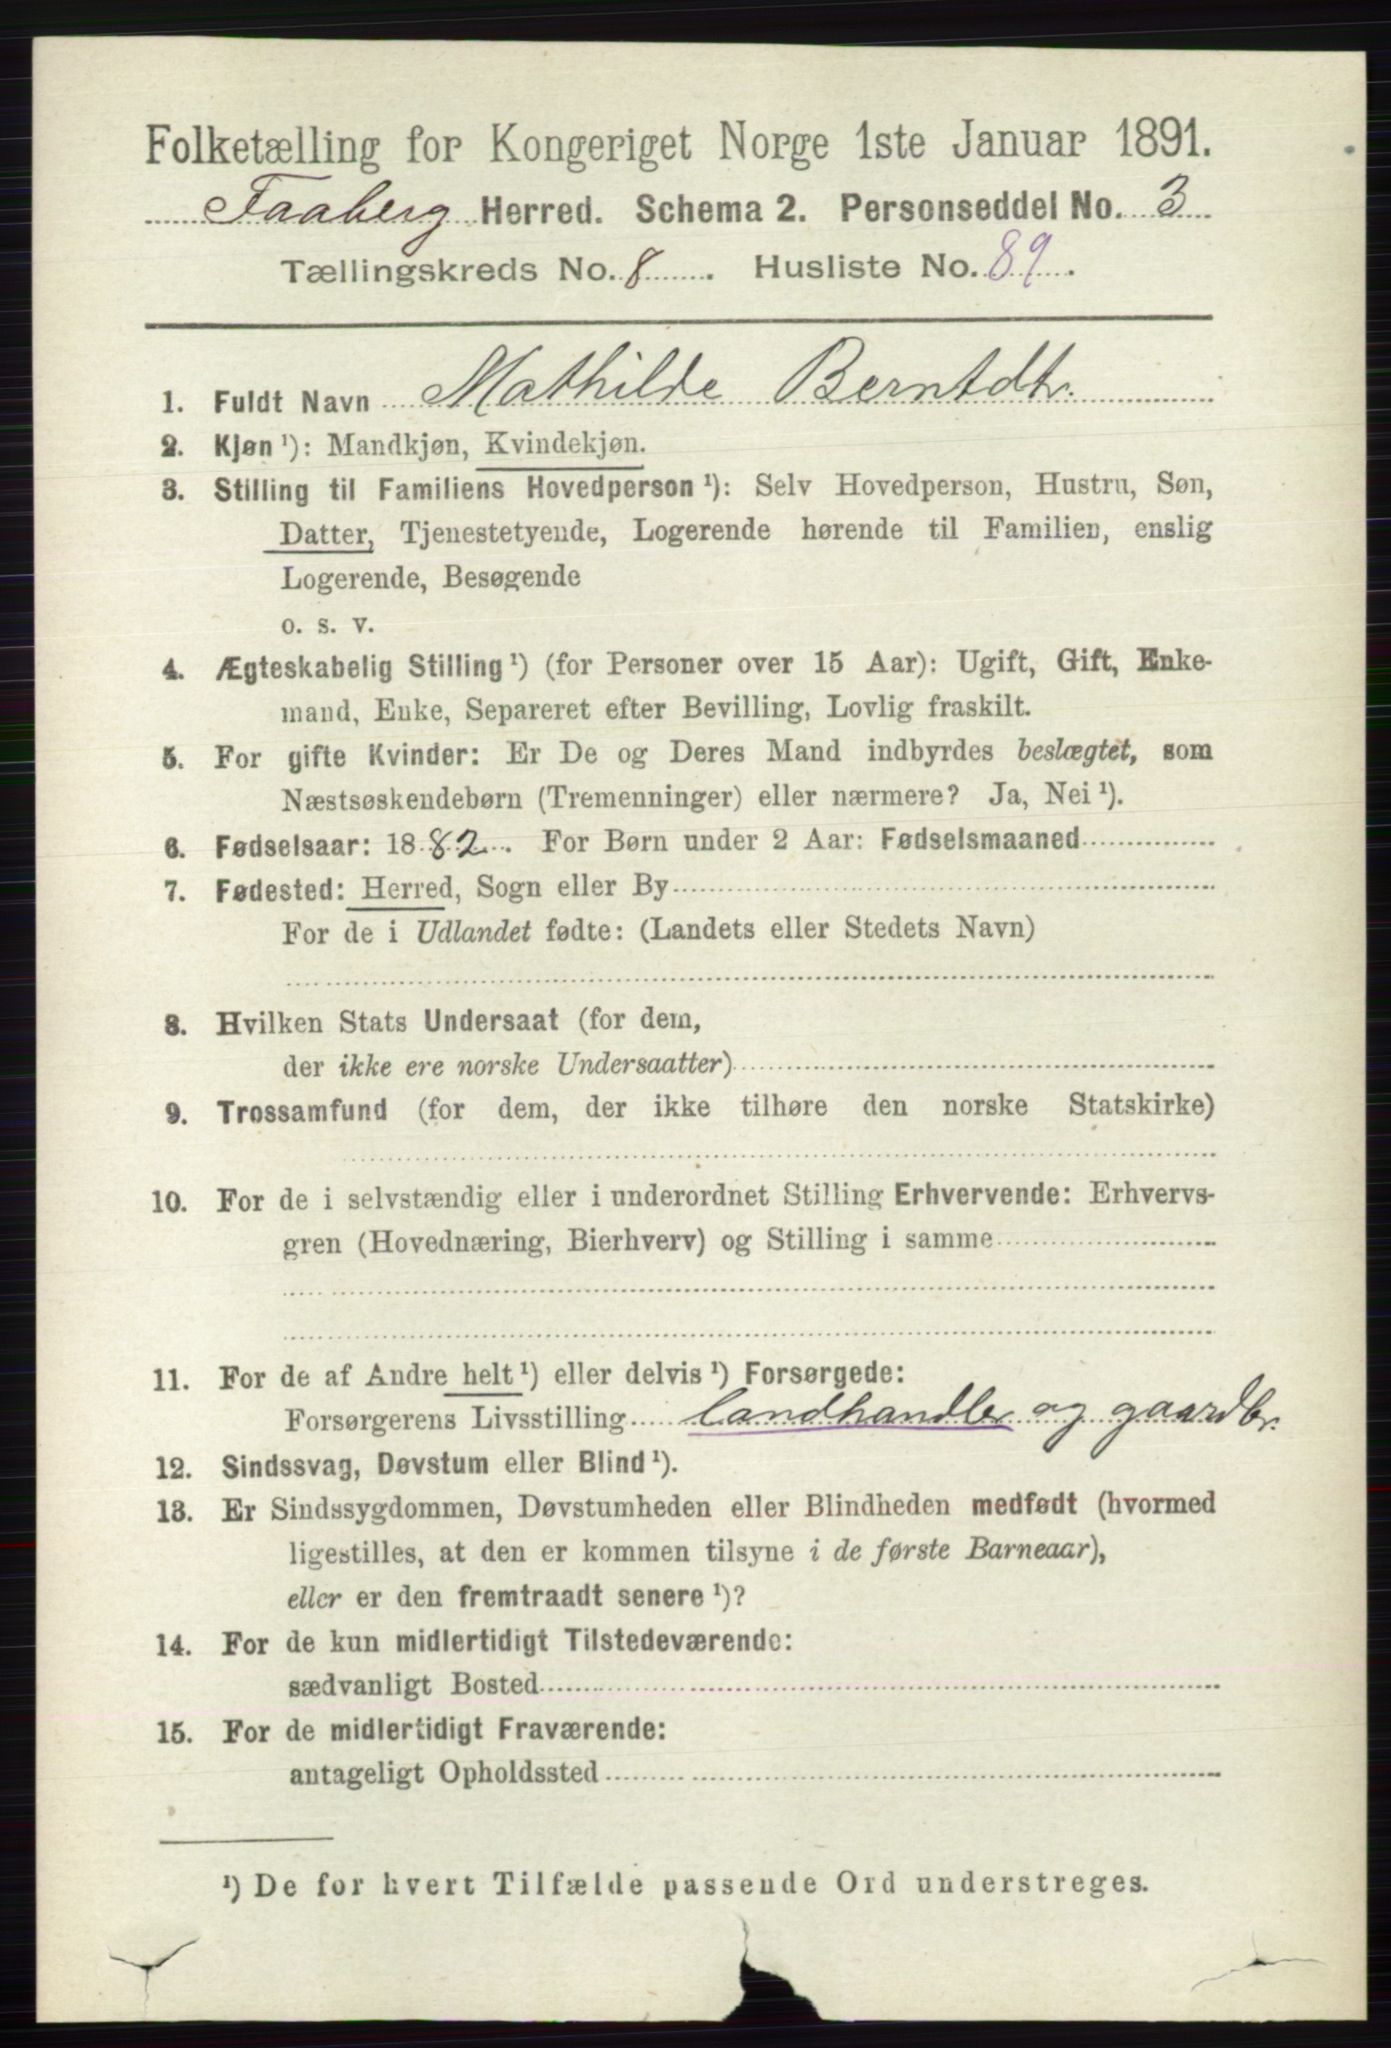 Folketælling for Kongeriget Norge 1ste Januar 1891.
Faaberg Herred. Schema 2. Personseddel No. 3
Tællingskreds No. 8. Husliste No. 89.
1. Fuldt Navn Mathilde Berntdtr.
2. Kjøn ¹): Mandkjøn, Kvindekjøn.
3. Stilling til Familiens Hovedperson ¹): Selv Hovedperson, Hustru, Søn,
Datter, Tjenestetyende, Logerende hørende til Familien, enslig
Logerende, Besøgende
o. s. v.
4. Ægteskabelig Stilling ¹) (for Personer over 15 Aar): Ugift, Gift, Enke-
mand, Enke, Separeret efter Bevilling, Lovlig fraskilt.
5. For gifte Kvinder: Er De og Deres Mand indbyrdes beslægtet, som
Næstsøskendebørn (Tremenninger) eller nærmere? Ja, Nei ¹).
6. Fødselsaar: 1882. For Børn under 2 Aar: Fødselsmaaned
7. Fødested: Herred, Sogn eller By
For de i Udlandet fødte: (Landets eller Stedets Navn)
8. Hvilken Stats Undersaat (for dem,
der ikke ere norske Undersaatter)
9. Trossamfund (for dem, der ikke tilhøre den norske Statskirke)
10. For de i selvstændig eller i underordnet Stilling Erhvervende: Erhvervs-
gren (Hovednæring, Bierhverv) og Stilling i samme
11. For de af Andre helt ¹) eller delvis ¹) Forsørgede:
Forsørgerens Livsstilling landhandler og gaardbr.
12. Sindssvag, Døvstum eller Blind ¹).
13. Er Sindssygdommen, Døvstumheden eller Blindheden medfødt (hvormed
ligestilles, at den er kommen tilsyne i de første Barneaar),
eller er den fremtraadt senere ¹)?
14. For de kun midlertidigt Tilstedeværende:
sædvanligt Bosted
15. For de midlertidigt Fraværende:
antageligt Opholdssted
¹) De for hvert Tilfælde passende Ord understreges.